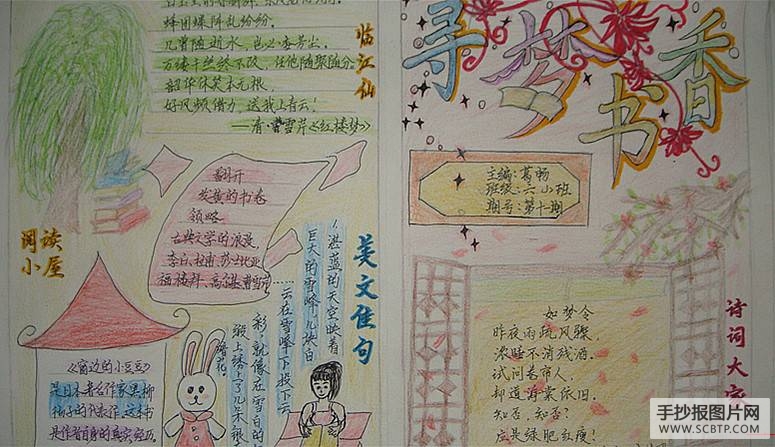 蜂团蝶阵乱纷纷。
几曾随逝水，岂必委芳尘。
万缕千丝终不改，任他随聚随分。
韶华休笑本无根，
好风频借力，送我上青云！
——清·曹雪芹《红楼梦》
临江仙
翻开
发黄的书卷
领略
古典文学的浪漫，
李白、杜甫、莎士比亚
福楼拜、高尔基、曹雪芹……
阅读
小屋
美文佳句
1、湛蓝的天空映着
巨大的雪峰，几块白
云在雪峰下投下云
影，就像在雪白的
缎上绣上了几朵银
《窗边的小豆豆》
是日本著名作家黑柳
彻子的代表作，这本书
是作者自身的真实经历
寻梦书香
主编：葛畅
班级：六小班
期号：第十期
如梦令
昨夜雨疏风骤，
浓睡不消残酒。
试问卷帘人，
却道海棠依旧。
知否，知否？
应是绿肥红瘦！
诗词大
手抄报图片网
WWW.SCBTP.COM